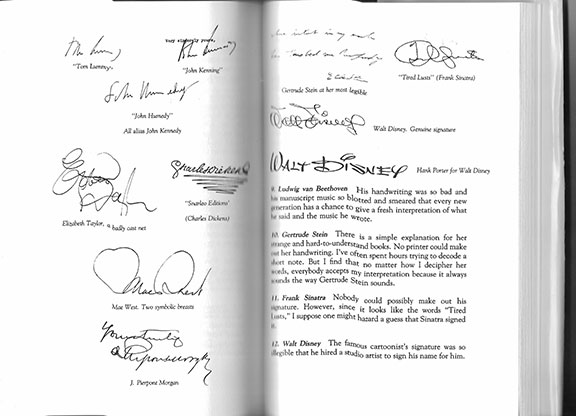 Very sincerely yours,
"Tom Lummy,
"John Kenning"
"John Humedy"
All alias John Kennedy
Elizabeth Taylor, a badly cast net
'Snarleo Editions'
(Charles Dickens)
Mae West
Mae West. Two symbolic breasts
J. Pierpont Morgan
Gertrude Stein at her most legible
"Tired Lusts" (Frank Sinatra)
Walt Disney
Walt Disney. Genuine signature
WALT DISNEY
Hank Porter for Walt Disney
9. Ludwig van Beethoven His handwriting was so bad and
his manuscript music so blotted and smeared that every new
generation has a chance to give a fresh interpretation of what
he said and the music he wrote.
10. Gertrude Stein There is a simple explanation for her
strange and hard-to-understand books. No printer could make
out her handwriting. I've often spent hours trying to decode a
short note. But I find that no matter how I decipher her
words, everybody accepts my interpretation because it always
sounds the way Gertrude Stein sounds.
11. Frank Sinatra Nobody could possibly make out his
signature. However, since it looks like the words "Tired
Lusts," I suppose one might hazard a guess that Sinatra signed
it.
12. Walt Disney The famous cartoonist's signature was so
illegible that he hired a studio artist to sign his name for him.